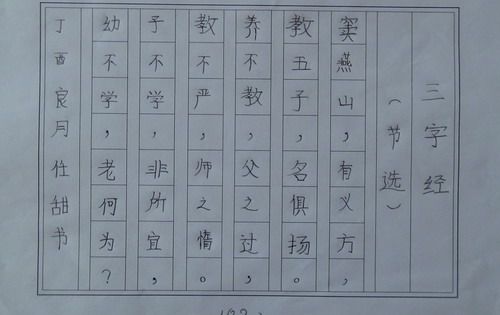 三字经
（节选）
窦燕山，有义方，
教五子，名俱扬。
养不教，父之过，
教不严，师之惰。
子不学，非所宜，
幼不学，老何为？
丁酉宸月任甜书